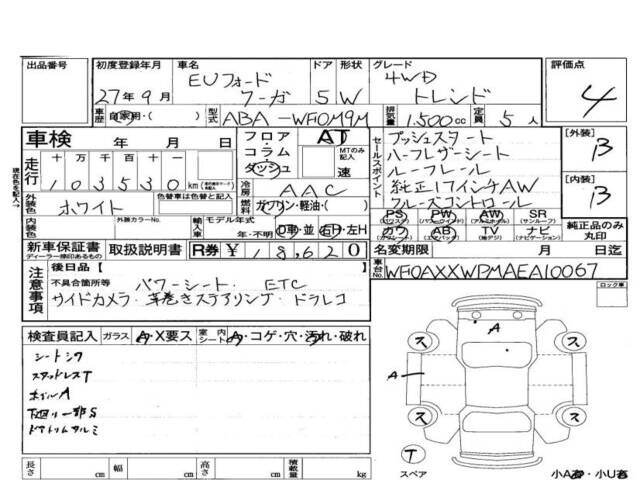 出品番号 初度登録年月 車名 ドア 形状 グレード 評価点
27年9月 EUフォード クーガ 5 W 4WD トレンド 4
車歴 自家用・( ) 型式 ABA-WF0M9M 排気量 1.500cc 定員 5人
車検 年 月 日
フロア・コラム・ダッシュ AT MTのみ記入 速
走行 十万千百十一
103530km
冷房 AAC
外装色 ホワイト 色替車は色替と記入
燃料 ガソリン・軽油・( )
内装色 外装カラーNo. 輸入車 モデル年式 年・不明 D車・並 右H・左H
新車保証書 ディーラー捺印あるもの 取扱説明書 R券 ¥18,620
セールスポイント
プッシュスタート
ハーフレザーシート
ルーフレール
純正17インチAW
クルーズコントロール
PS PW AW SR
カワ AB TV ナビ
(パワステ) (パワーウィンド) (アルミホイル) (サンルーフ)
(カワシート) (エアバッグ) (地デジ) (ナビゲーション)
[外装] B
[内装] B
純正品のみ丸印
名変期限 月 日迄
車台No. WF0AXXWPMAEA10067
現在色を記入→
注意事項 後日品【 】
不具合箇所等 パワーシート. ETC
サイドカメラ. 革巻きステアリング・ドラレコ
ロック車
検査員記入 ガラス A・X要ス 室内シート A・コゲ・穴・汚れ・破れ
シートシワ
スタッドレスT
ホイルA
下廻り一部S
ドアトリムウルミ
A
ス ス
A
ス ス
T
スペア
小A・小U
長さ cm 幅 cm 高さ cm 積載量 kg